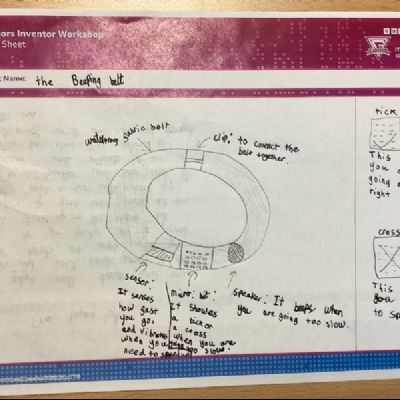 ors Inventor Workshop
Sheet
Name: the Beeping belt
fabric belt
clip: to connect the
belt together.
sensor:
It senses
how fast
you go,
and vibrates
when you
need to
micro:bit:
It showes
a tick or
a cross
when you are
going too slow.
speaker: It beeps when
you are going too slow.
tick
This
you a
going
right
cross
This
you
to sp